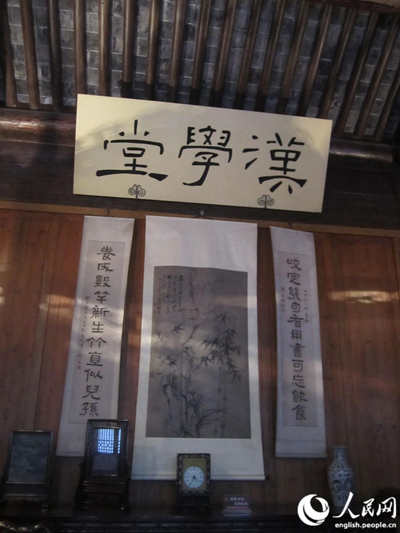 漢學堂
咬定幾句有用書可忘飲食
養成數竿新生竹直似兒孫
人民网
english.people.cn